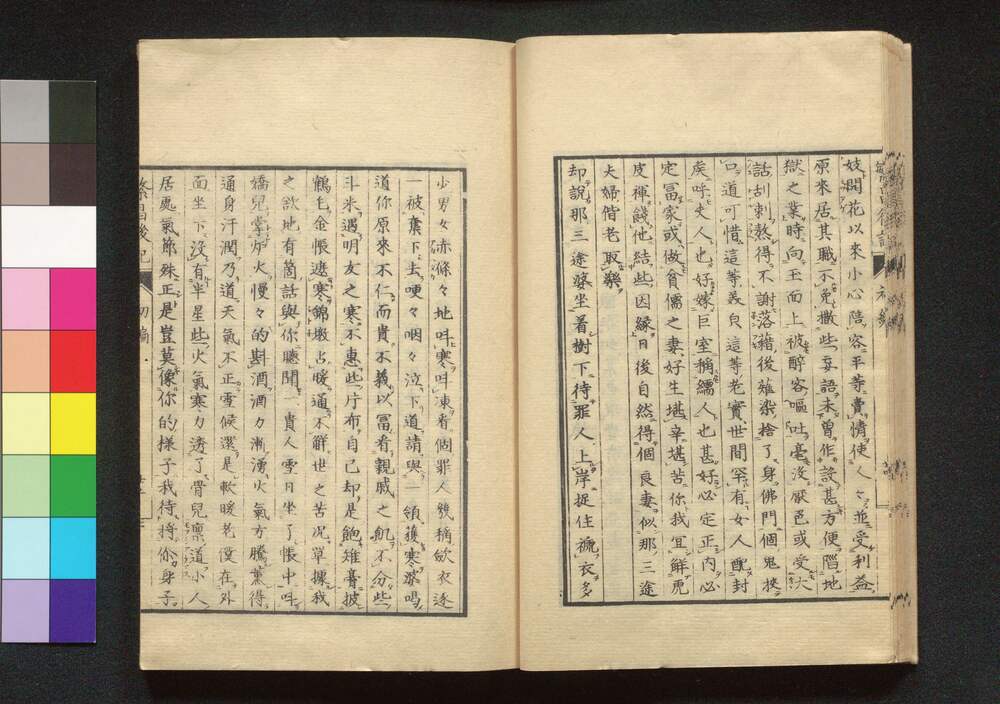 妓閒花以來小心陪容平等賣情使人々並受利益
原來居其職不免撒些妄語未曾作設甚方便陷地
獄之業時向王面上被醉客嘔吐毫沒厭色或受大
話刮刺熬得不謝落藉後薙染捨了身佛門個鬼挾
口道可惜這等義良這等老實世間罕有女人配封
矦呼夫人也好嫁巨室稱孺人也甚好必定正內必
定冨家或做貧儒之妻好生堪辛堪苦你我宜鮮虎
皮褌餞他結些因緣日後自然得個良妻似那三途
夫婦偕老取樂
却說那三途婆坐着樹下待罪人上岸捉住褫衣多
少男女赤條々地呌寒呌凍看個罪人纔稱飲衣逐
一被奪下去哽々咽々泣下道請與一領獲寒婆喝
道你原來不仁而貴不義以冨看親戚之飢不分些
斗米遇明友之寒不惠些片布自己却是飽雉膏披
鶴毛金帳遮寒錦㙮占暖通不觧世之苦况草據我
之欲地有箇話與你聽聞一貴人雪日坐了帳中呌
嬌兒掌炉火慢々的斟酒酒力漸湧火氣方騰薰得
通身汗潤乃道天氣不正雪候還是軟暖老僕在外
面坐下沒有半星些火氣寒力透了骨兒稟道小人
居處氣節殊正是豈莫像你的樣子我待將你身子
繁昌後記 初編